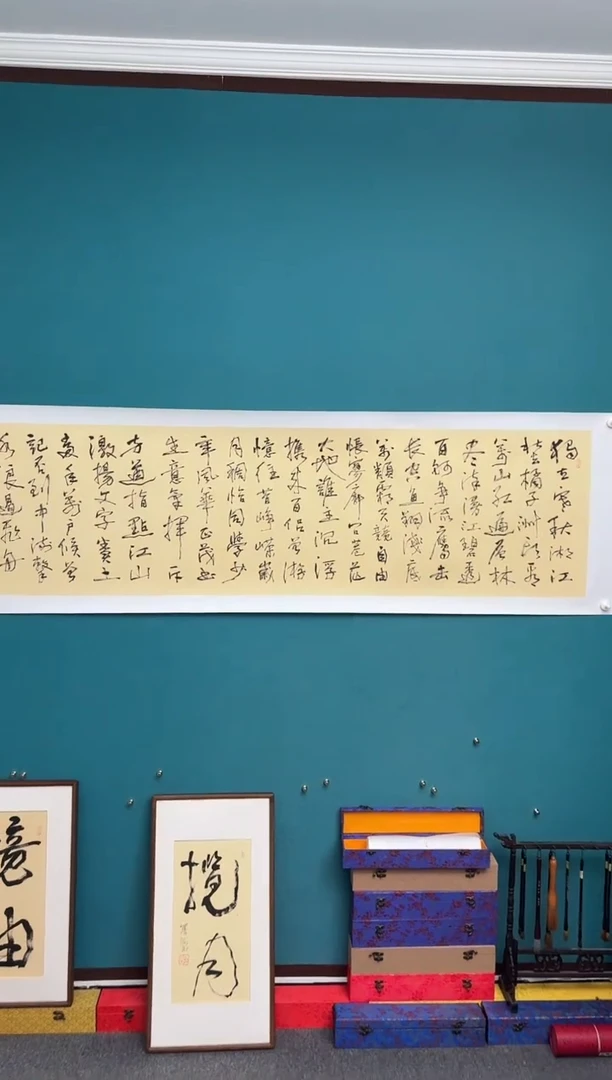 獨立寒秋湘江
北去橘子洲頭看
萬山紅遍層林
盡染漫江碧透
百舸爭流鷹擊
長空魚翔淺底
萬類霜天競自由
悵寥廓問蒼茫
大地誰主沉浮
攜來百侶曾游
憶往昔崢嶸歲
月稠恰同學少
年風華正茂書
生意氣揮斥
方遒指點江山
激揚文字糞土
當年萬戶侯曾
記否到中流擊
水浪遏飛舟
攬月
由